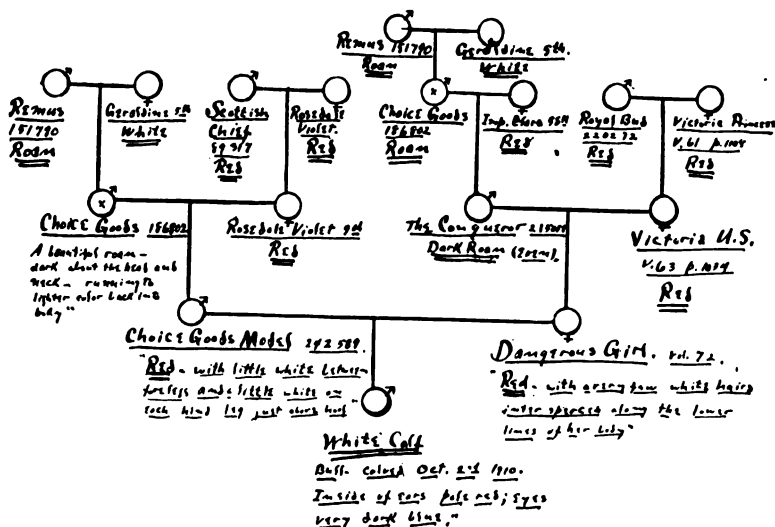 Remus 151790 Roan
Geraldine 5th. White
Remus 151790 Roan
Geraldine 5th White
Scottish Chief Red
Rosedale Violet. Red
Choice Goods 186802 Roan
Red
Royal Bud Red
Victoria Princess V.61 p. Red
Choice Goods 186802
A beautiful roan –
dark about the head and
neck – running to
lighter color back in
body"
Rosedale Violet 9th
Red
The Conqueror
Dark Roan
Victoria U.S.
V.63 p.
Red
Choice Goods Model
"Red – with little white between
forelegs and a little white on
each hind leg just above hoof"
Dangerous Girl. vol. 72.
"Red – with a very few white hairs
interspersed along the lower
lines of her body"
White Calf
Buff-colored Oct. 1910.
Inside of ears pale red; eyes
very dark blue."